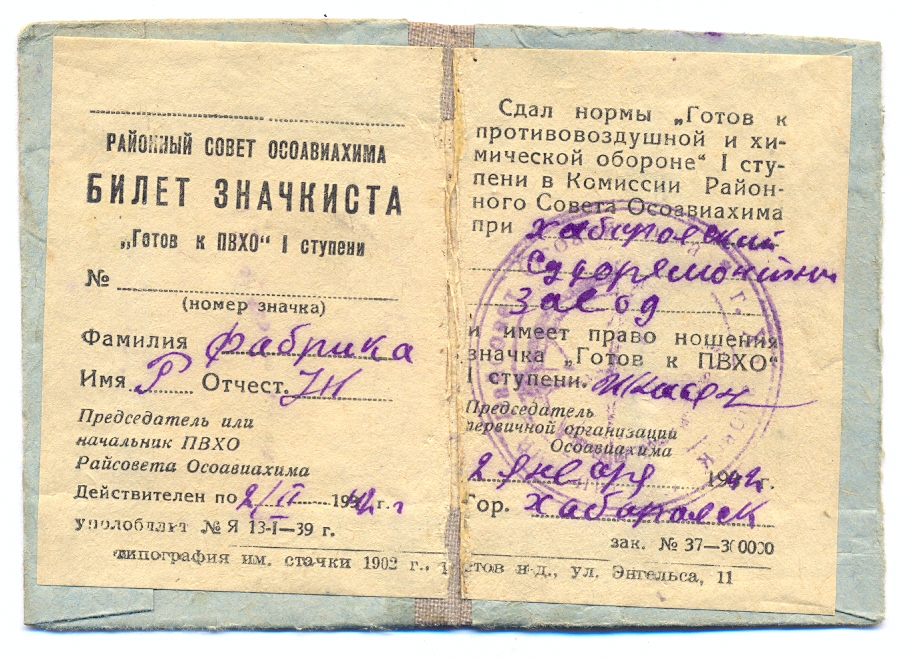 РАЙОННЫЙ СОВЕТ ОСОАВИАХИМА
БИЛЕТ ЗНАЧКИСТА
„Готов к ПВХО“ I ступени
№
(номер значка)
Фамилия Фабрика
Имя Р Отчест.
Председатель или
начальник ПВХО
Райсовета Осоавиахима
Действителен по 2/II 1942 г.
уполобллит № Я 13-I—39 г.
типография им. стачки 1902 г., Ростов н-д., ул. Энгельса, 11
Сдал нормы „Готов к
противовоздушной и хи-
мической обороне“ I сту-
пени в Комиссии Район-
ного Совета Осоавиахима
при Хабаровский
Судоремонтный
завод
и имеет право ношения
значка „Готов к ПВХО“
I ступени.
Председатель
первичной организации
Осоавиахима
2 января 1942
Гор. Хабаровск
зак. № 37—300000